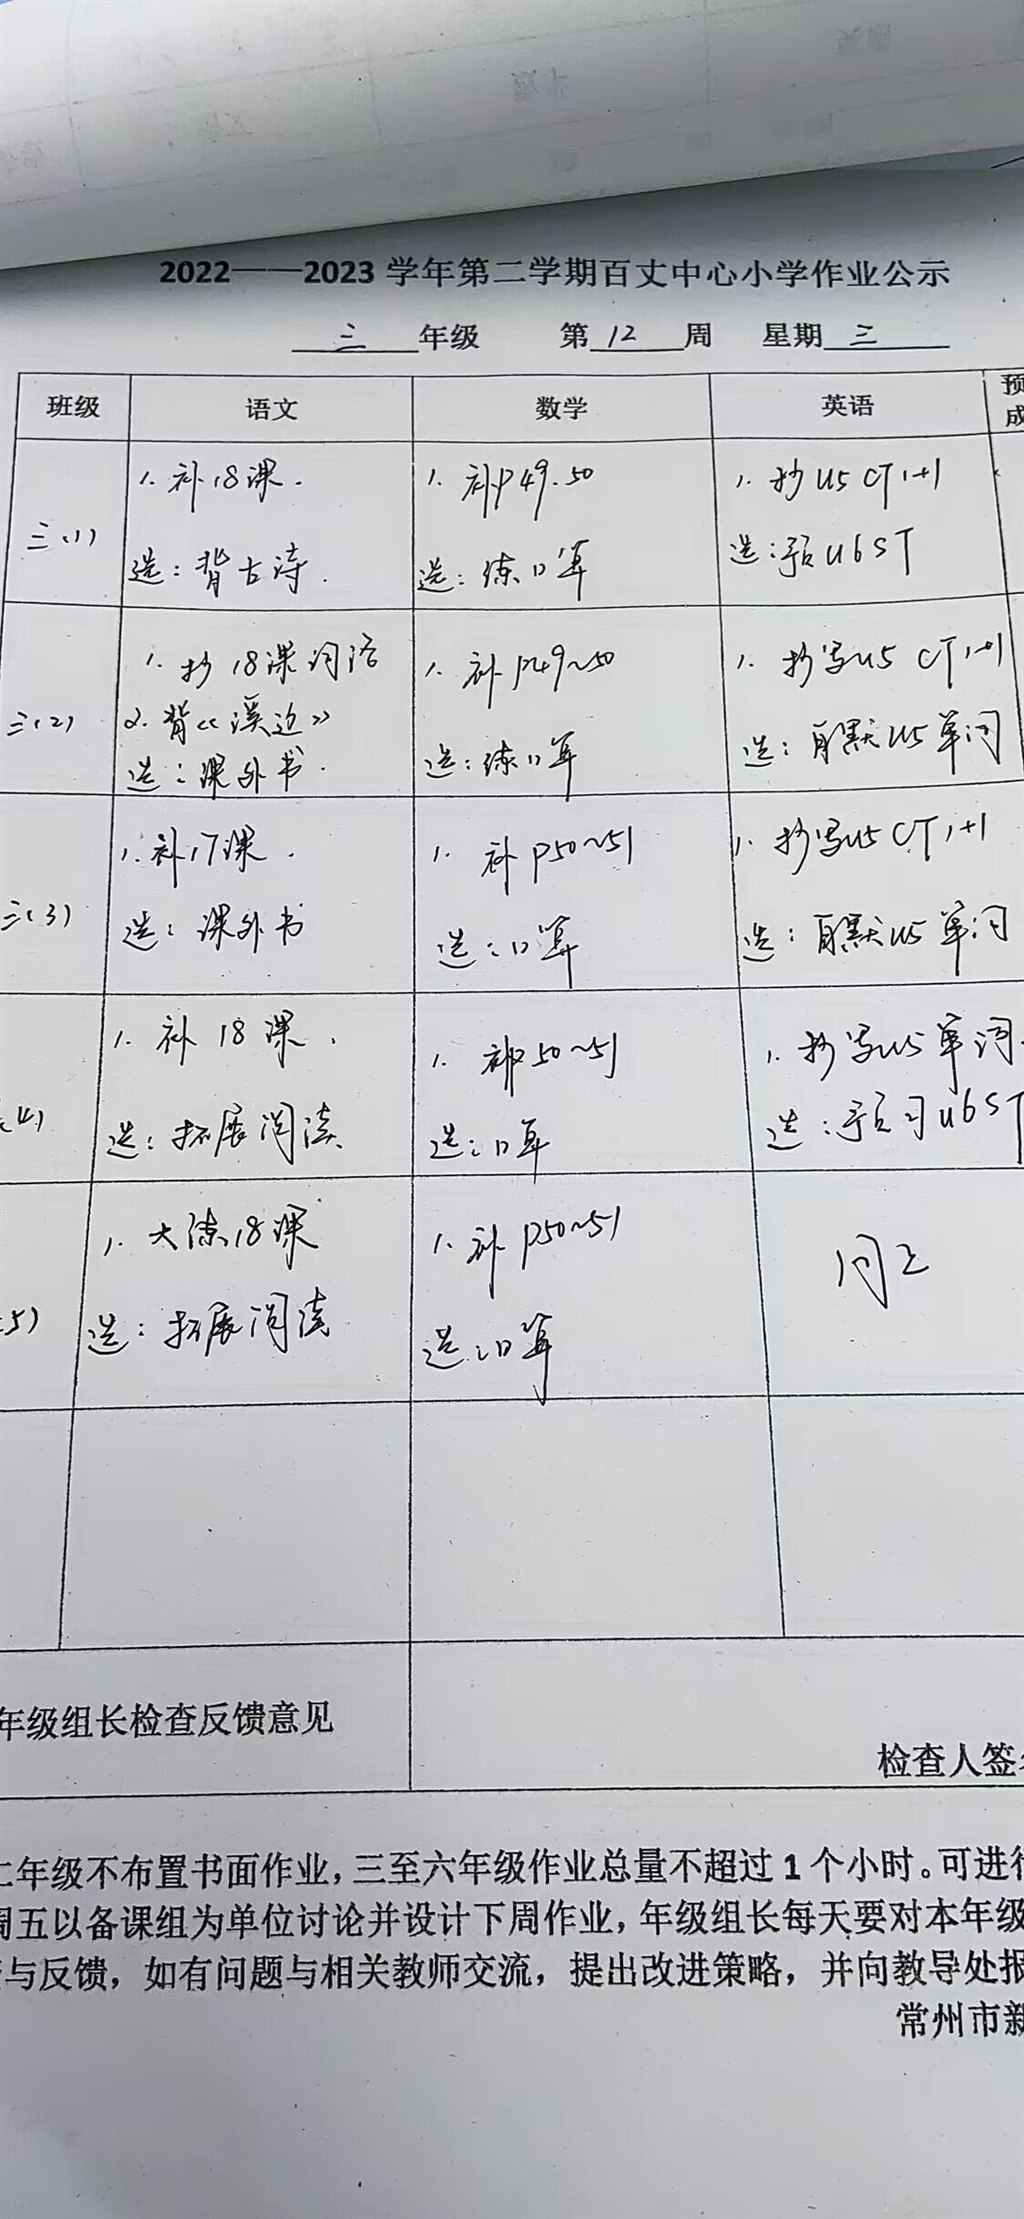 2022——2023 学年第二学期百丈中心小学作业公示
三 年级 第 12 周 星期 三
班级 语文 数学 英语 预
成
三(1)
1. 补18课.
选:背古诗.
1. 补P49.50
选:练口算
1. 抄U5 CT 1+1
选:预U6ST
三(2)
1. 抄18课词语
2. 背《溪边》
选:课外书.
1. 补P49~50
选:练口算
1. 抄写U5 CT 1+1
选:自默U5单词
三(3)
1. 补17课.
选:课外书
1. 补P50~51
选:口算
1. 抄写U5 CT 1+1
选:自默U5单词
4)
1. 补18课.
选:拓展阅读
1. 补P50~51
选:口算
1. 抄写U5单词
选:预习U6ST
5)
1. 大练18课
选:拓展阅读
1. 补P50~51
选:口算
同上
年级组长检查反馈意见
检查人签
二年级不布置书面作业,三至六年级作业总量不超过 1 个小时。可进行
周五以备课组为单位讨论并设计下周作业,年级组长每天要对本年级
与反馈,如有问题与相关教师交流,提出改进策略,并向教导处报
常州市新